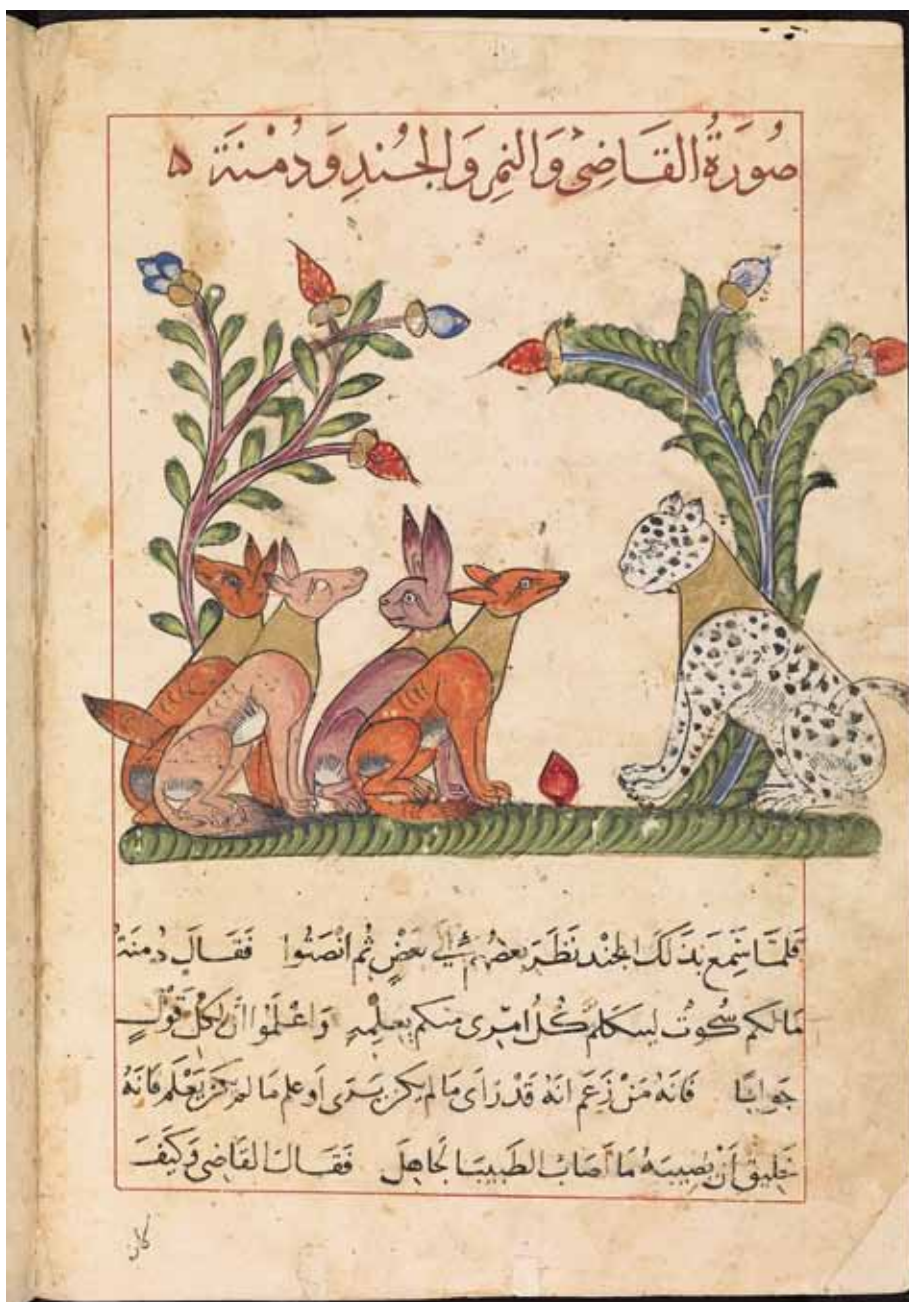 صُورَةُ القَاضِي وَالنمِرِ وَالجُندِ وَدُمْنَة ۵
فَلمَّا سَمِعَ بذَلكَ الجند نَظَرَ بَعضهُم إلى بَعضٍ ثُم انْصَتُوا فَقَالَ دُمنَةُ
مَا لكم سُكوُت ليتكلم كُلُ امرِى منكم بعِلمِهِ وَاعْلَموُا انّ لكلِ قولٍ
جَوابًا فَانهُ مَنْ زَعَمَ انهُ قَد رَاى مَا لم يكن يَرَى اَو علم مَا لم يكن يَعْلَم فَانهُ
خَليق اَنْ يُصِيبَهُ مَا اَصَابَ الطَبيبَ الجَاهِلَ فَقَالَ القَاضِى وَكَيْفَ
كان